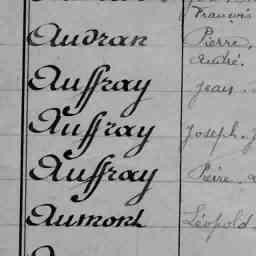 François
Audran Pierre,
André.
Auffray Jean.
Auffray Joseph.
Auffray Pierre.
Aumont Léopold